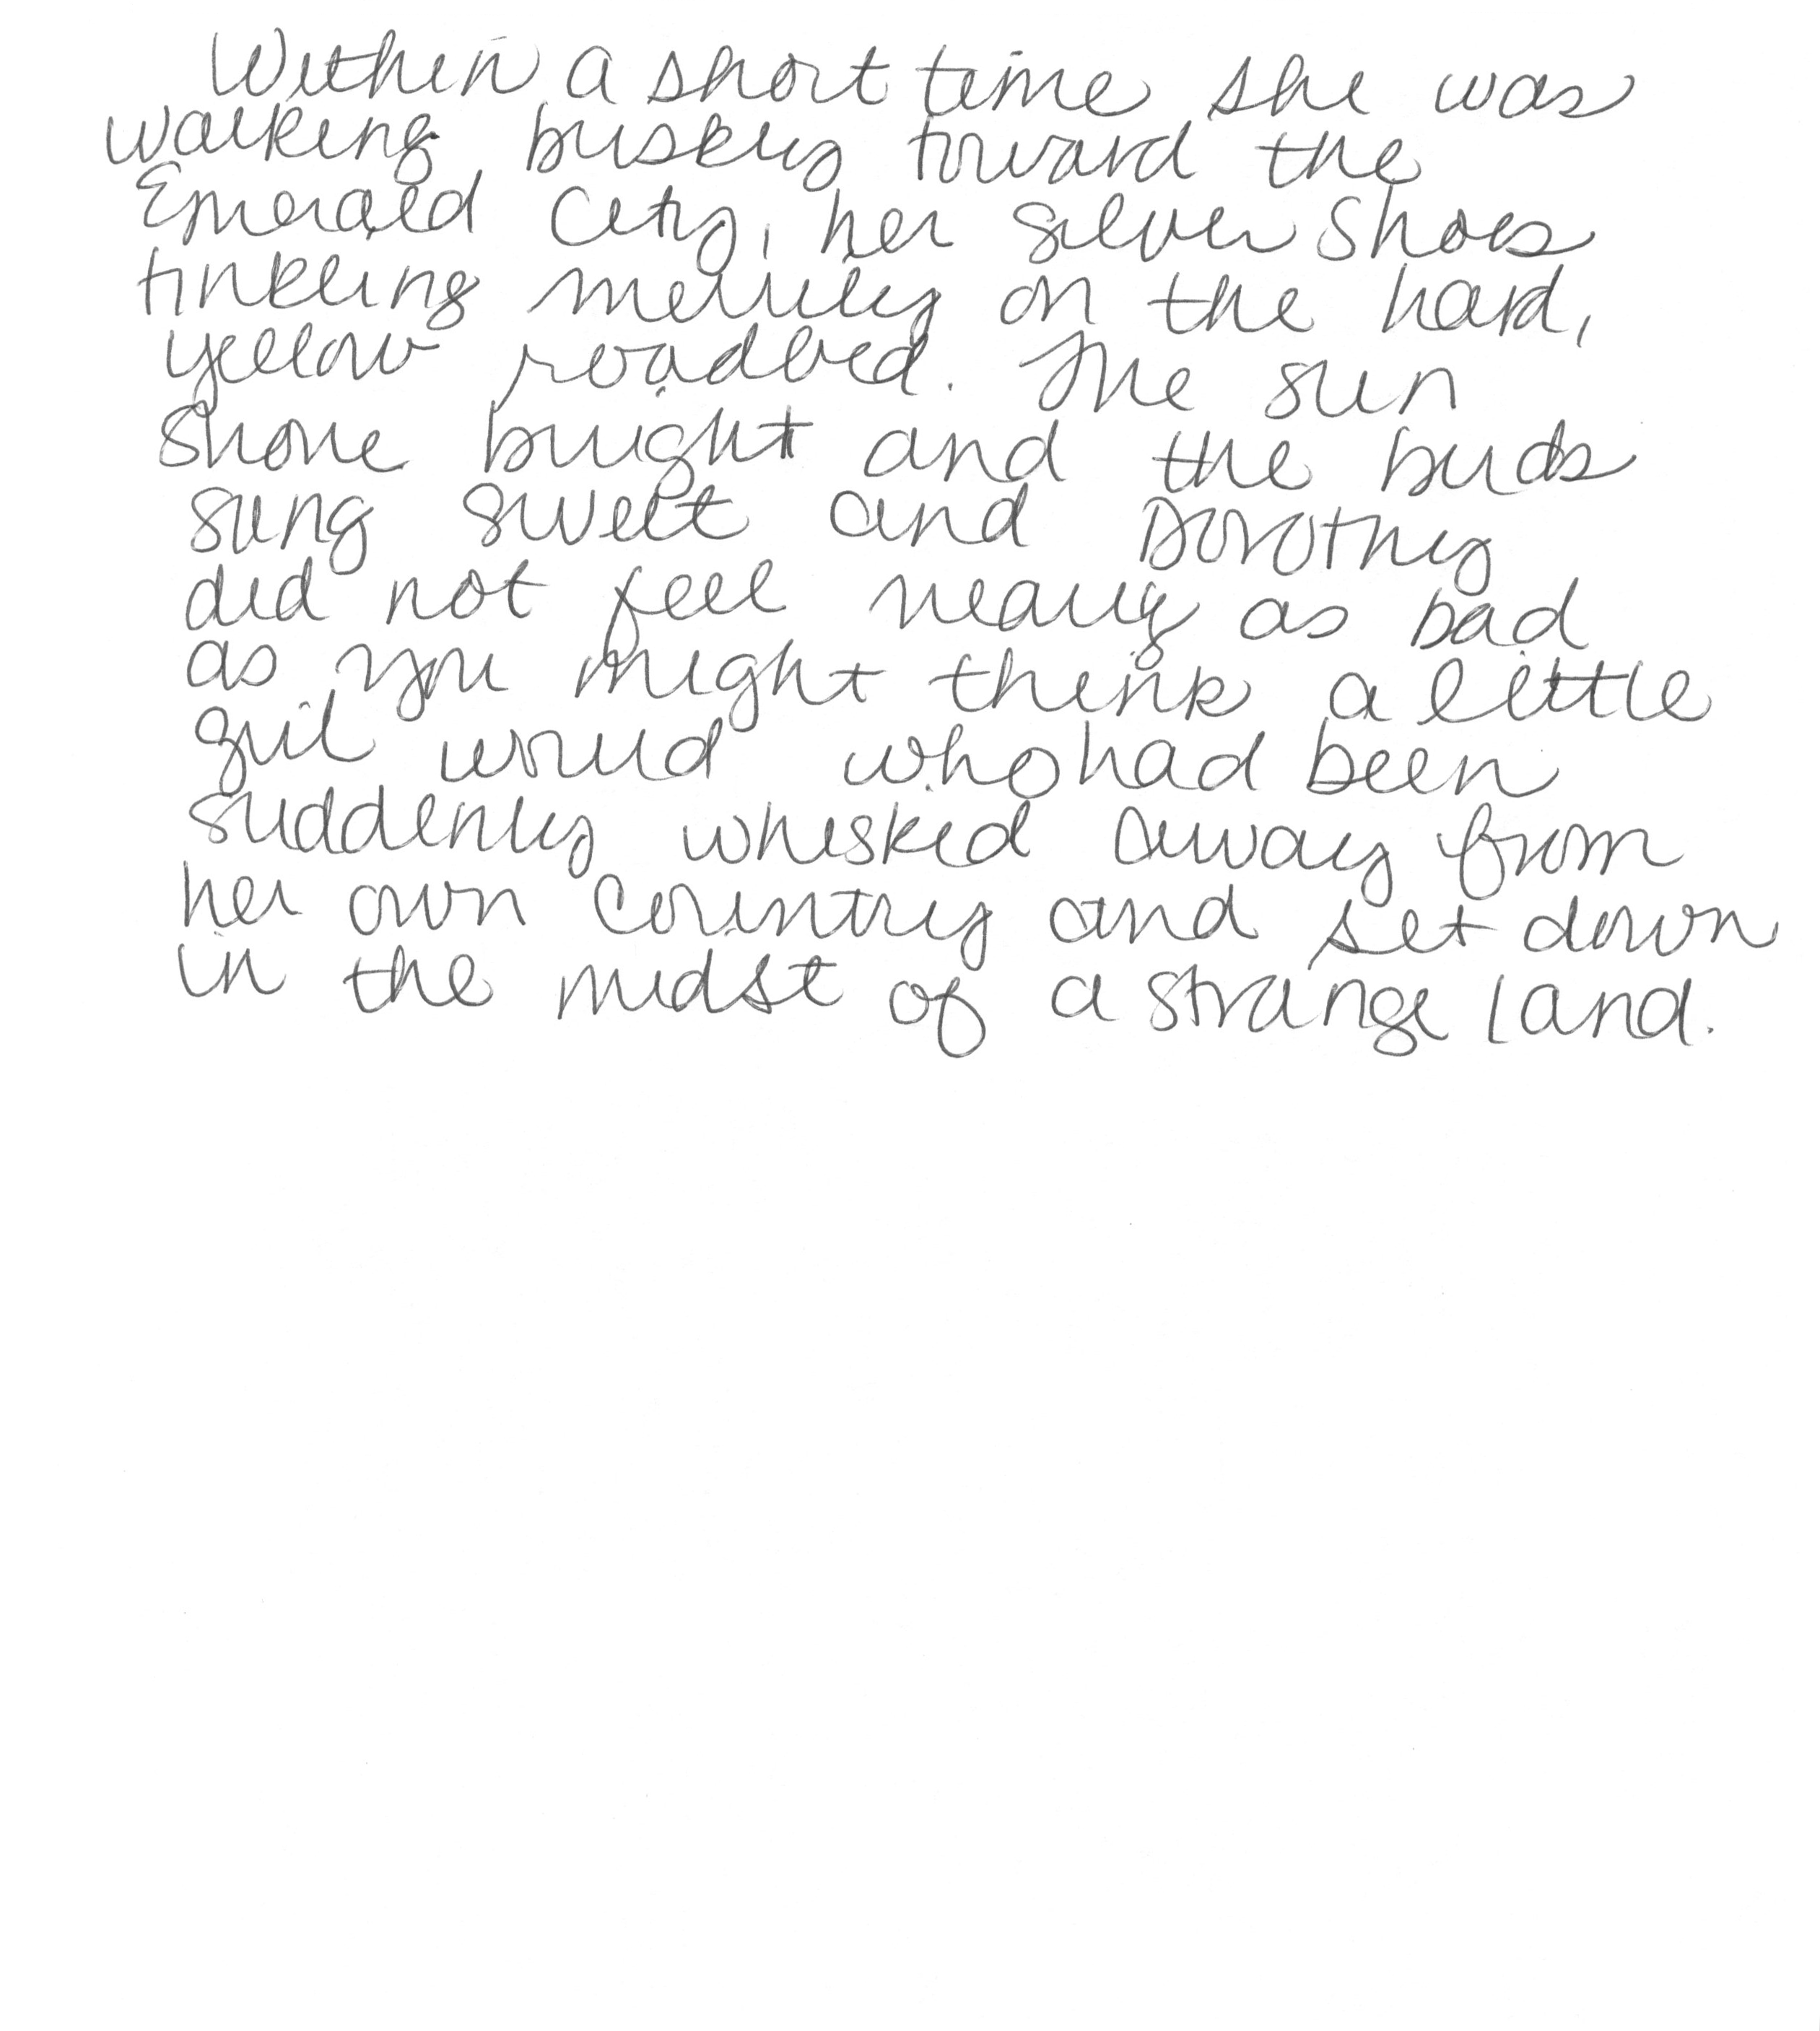 Within a short time she was
walking briskly toward the
Emerald City, her silver shoes
tinkling merrily on the hard,
yellow roadbed. The sun
shone bright and the birds
sung sweet and Dorothy
did not feel nearly as bad
as you might think a little
girl would who had been
suddenly whisked away from
her own country and set down
in the midst of a strange land.